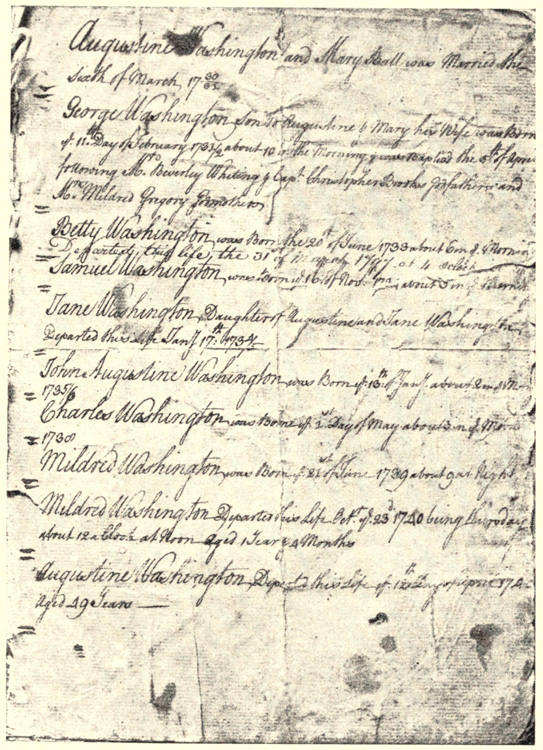 Augustine Washington and Mary Ball was Married the
Sixth of March 17 30/31
George Washington Son to Augustine & Mary his Wife was Born
yᵉ 11ᵗʰ Day of February 1731/2 about 10 in the Morning & was Baptised the 5ᵗʰ of April
following Mʳ Beverley Whiting & Capᵗ Christopher Brooks Godfathers and
Mʳˢ Mildred Gregory Godmother
Betty Washington was Born the 20ᵗʰ of June 1733 about 6 in yᵉ Morning
Departed this life, the 31 of March 1797 at 4 oclock
Samuel Washington was Born yᵉ 16 of Novʳ 1734 about 3 in yᵉ Morning
Jane Washington Daughter of Augustine and Jane Washington
Departed this Life Janʸ 17ᵗʰ 1734/5
John Augustine Washington was Born yᵉ 13ᵗʰ of Janʸ about 2 in yᵉ Morn
1735/6
Charles Washington was Borne yᵉ 1ˢᵗ Day of May about 3 in yᵉ Morn
1738
Mildred Washington was Born yᵉ 21ˢᵗ of June 1739 about 9 at Night
Mildred Washington Departed this Life Octʳ yᵉ 23ᵈ 1740 being Thursday
about 12 a Clock at Noon aged 1 Year & 4 Months
Augustine Washington Departed this Life yᵉ 12ᵗʰ Day of April 174
Aged 49 Years